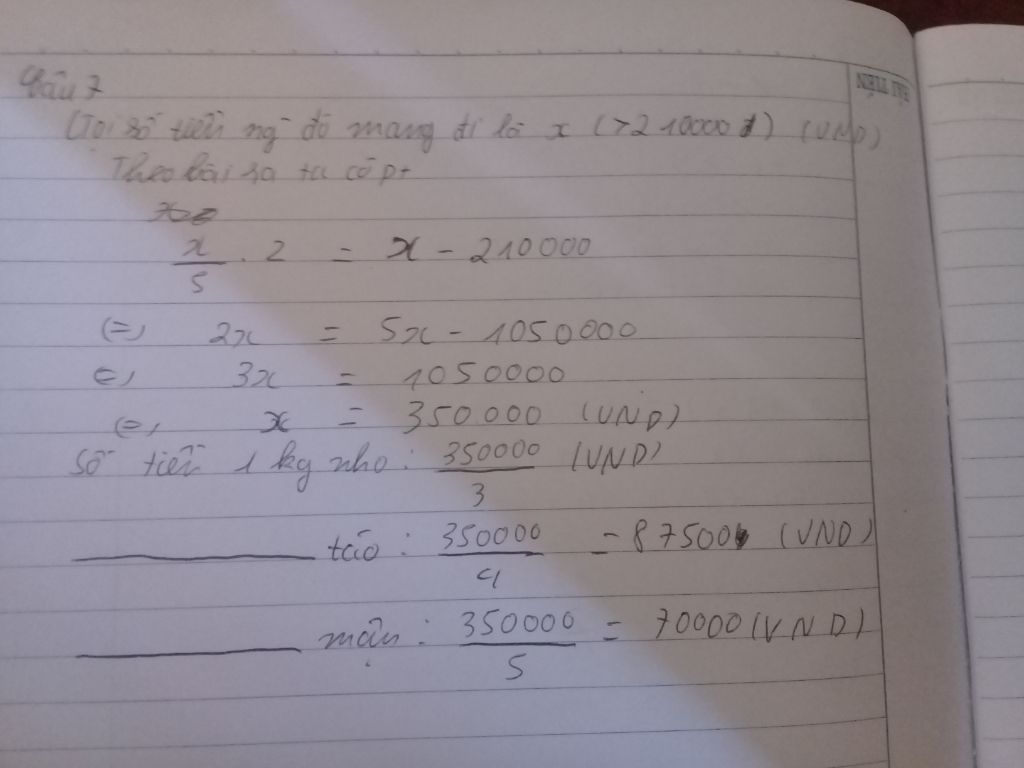 Câu 7
Gọi số tiền ng` đó mang đi là x (>210000đ) (VND)
Theo bài ra ta có pt
x/5 . 2 = x - 210000
(=) 2x = 5x - 1050000
(=) 3x = 1050000
(=) x = 350000 (VND)
Số tiền 1 kg nho : 350000/3 (VND)
táo : 350000/4 = 87500 (VND)
mận : 350000/5 = 70000 (VND)